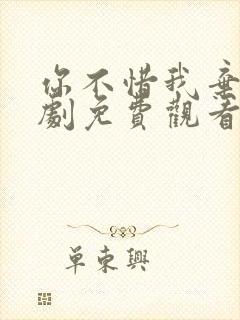 你不惜我棄
劇免費觀看
單東興